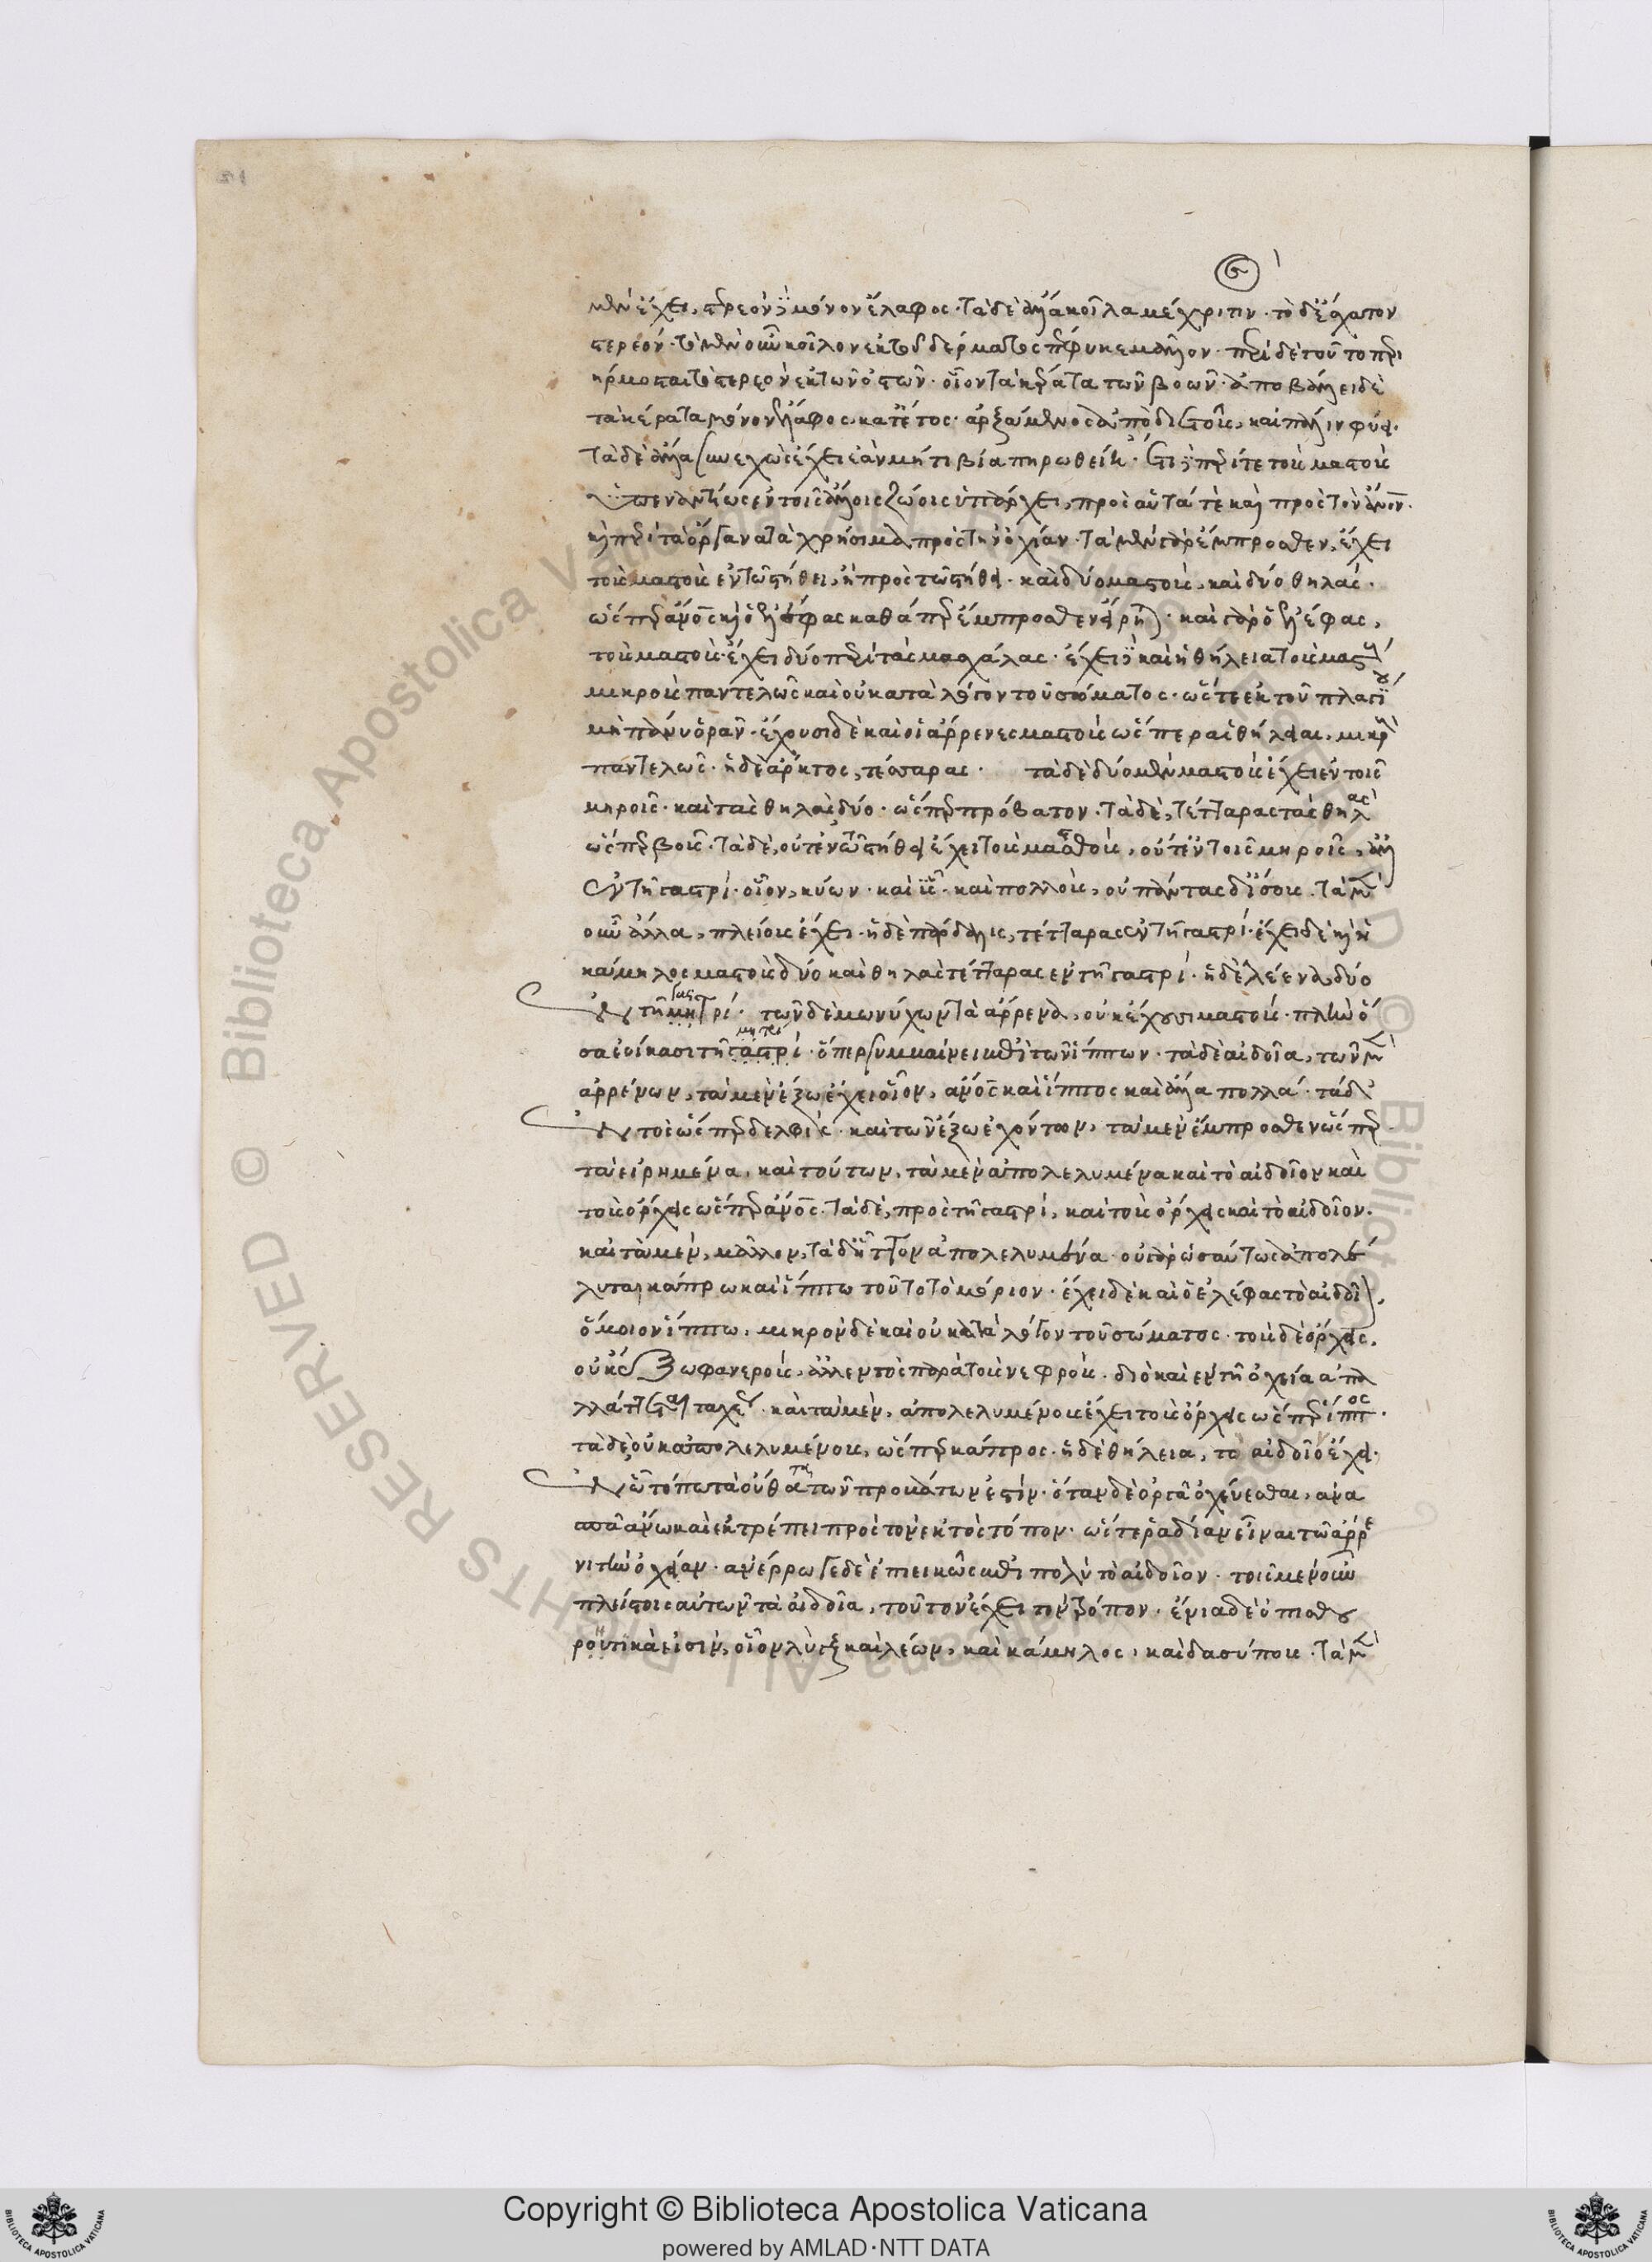 μὲν ἔχει στερεὸν μόνον ἔλαφος· τὰ δὲ ἄλλα κοῖλα μέχρι τιν· τὸ δὲ ἔσχατον
στερεόν· τὸ μὲν οὖν κοῖλον ἐκ τοῦ δέρματος πέφυκε μᾶλλον· περὶ δὲ τοῦτο περι
ήρμοσται τὸ στερεὸν ἐκ τῶν ὀστῶν· οἷον τὰ κέρατα τῶν βοῶν· ἀποβάλλει δὲ
τὰ κέρατα μόνον ἔλαφος κατ' ἔτος· ἀρξάμενος ἀπὸ διετοῦς, καὶ πάλιν φύει·
τὰ δὲ ἄλλα συνεχῶς ἔχει ἐὰν μή τι βία πηρωθείη· ἔτι περί τε τοὺς μαστοὺς
ὑπεναντίως ἐν τοῖς ἄλλοις ζώοις ὑπάρχει, πρὸς αὑτά τε καὶ πρὸς τὸν ἄνον·
καὶ περὶ τὰ ὄργανα τὰ χρήσιμα πρὸς τὴν ὀχείαν· τὰ μὲν γὰρ ἔμπροσθεν, ἔχει
τοὺς μαστοὺς ἐν τῶ στήθει, ἢ πρὸς τῶ στήθει· καὶ δύο μαστοὺς, καὶ δύο θηλάς·
ὥσπερ ἄνος καὶ ὁ ἐλέφας καθάπερ ἔμπροσθεν εἴρηται· καὶ γὰρ ὁ ἐλέφας,
τοὺς μαστοὺς ἔχει δύο περὶ τὰς μασχάλας· ἔχει δὲ καὶ ἡ θήλεια τοὺς μαστοὺς
μικροὺς παντελῶς καὶ οὐ κατὰ λόγον τοῦ σώματος· ὥστε ἐκ τοῦ πλαγίου
μὴ πάνυ ὁρᾶν· ἔχουσι δὲ καὶ οἱ ἄρρενες μαστοὺς ὥσπερ αἱ θήλειαι, μικροὺς
παντελῶς· ἡ δὲ ἄρκτος, τέσσαρας· τὰ δὲ δύο μὲν μαστοὺς ἔχει ἐν τοῖς
μηροῖς· καὶ τὰς θηλὰς δύο· ὥσπερ πρόβατον· τὰ δὲ, τέτταρας τὰς θηλὰς
ὥσπερ βοῦς· τὰ δὲ, οὔτ' ἐν τῶ στήθει ἔχει τοὺς μασθοὺς, οὔτ' ἐν τοῖς μηροῖς, ἀλλ'
ἐν τῆ γαστρί· οἷον, κύων· καὶ ὗς· καὶ πολλοὺς, οὐ πάντας δ' ἴσους· τὰ μὲν
οὖν ἄλλα, πλείους ἔχει· ἡ δὲ πάρδαλις, τέτταρας ἐν τῆ γαστρί· ἔχει δὲ καὶ ἡ
κάμηλος μαστοὺς δύο καὶ θηλὰς τέτταρας ἐν τῆ γαστρί· ἡ δὲ λέαινα, δύο
ἐν τῆ μητρί· τῶν δὲ μωνύχων τὰ ἄρρενα, οὐκ ἔχουσι μαστούς· πλὴν ὅ
σα ἐοίκασι τῆ γαστρί· ὅπερ συμβαίνει ἐπὶ τῶν ἵππων· τὰ δὲ αἰδοῖα, τῶν μὲν
ἀρρένων, τὰ μὲν ἔξω ἔχει οἷον, ἄνος καὶ ἵππος καὶ ἄλλα πολλά· τὰ δ'
ἐντὸς ὥσπερ δελφίς· καὶ τῶν ἔξω ἐχόντων, τὰ μὲν ἔμπροσθεν ὥσπερ
τὰ εἰρημένα, καὶ τούτων, τὰ μὲν ἀπολελυμένα καὶ τὸ αἰδοῖον καὶ
τοὺς ὄρχεις ὥσπερ ἄνος· τὰ δὲ, πρὸς τῆ γαστρί, καὶ τοὺς ὄρχεις καὶ τὸ αἰδοῖον·
καὶ τὰ μὲν, μᾶλλον, τὰ δ' ἧττον ἀπολελυμένα· οὐ γὰρ ὡσαύτως ἀπολέ
λυται κάπρω καὶ ἵππω τοῦτο τὸ μόριον· ἔχει δὲ καὶ ὁ ἐλέφας τὸ αἰδοῖον,
ὅμοιον ἵππω, μικρὸν δὲ καὶ οὐ κατὰ λόγον τοῦ σώματος· τοὺς δὲ ὄρχεις,
οὐκ ἔξω φανεροὺς, ἀλλ' ἐντὸς παρὰ τοὺς νεφρούς· διὸ καὶ ἐν τῆ ὀχεία ἀπα
λλάττεται ταχέως· καὶ τὰ μὲν, ἀπολελυμένους ἔχει τοὺς ὄρχεις ὥσπερ ἵππος·
τὰ δὲ, οὐκ ἀπολελυμένους, ὥσπερ κάπρος· ἡ δὲ θήλεια, τὸ αἰδοῖον ἔχει·
ἐν ὧ τόπω τὰ οὔθατα τῶν προβάτων ἐστίν· ὅταν δὲ ὀργᾶ ὀχεύεσθαι, ἀνα
σπᾶ ἄνω καὶ ἐκτρέπει πρὸς τὸν ἐκτὸς τόπον· ὥστε ῥαδίαν εἶναι τῶ ἄρρε
νι τὴν ὀχείαν· ἀνέρρωγε δὲ ἐπιεικῶς ἐπὶ πολὺ τὸ αἰδοῖον· τοῖς μὲν οὖν
πλείστοις αὐτῶν τὰ αἰδοῖα, τοῦτον ἔχει τὸν τρόπον· ἔνια δὲ ὀπισθου
ρητικά εἰσιν, οἷον λὺγξ καὶ λέων, καὶ κάμηλος, καὶ δασύπους· τὰ μὲν
Copyright © Biblioteca Apostolica Vaticana
powered by AMLAD·NTT DATA